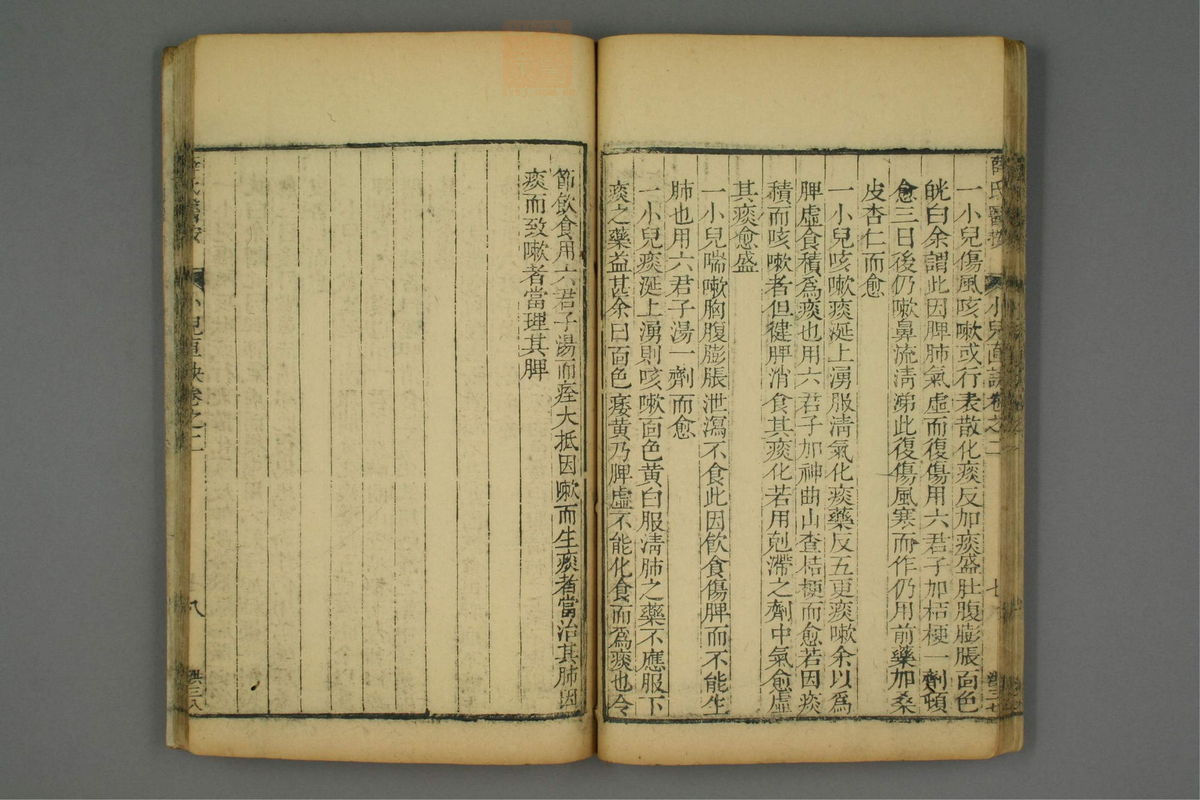 薛氏醫按
小兒直訣卷之二
七
一小兒傷風咳嗽或行表散化痰反加痰盛肚腹膨脹面色
㿠白余謂此因脾肺氣虛而復傷用六君子加桔梗一劑頓
愈三日後仍嗽鼻流清涕此復傷風寒而作仍用前藥加桑
皮杏仁而愈
一小兒咳嗽痰涎上湧服清氣化痰藥反五更痰嗽余以為
脾虛食積為痰也用六君子加神曲山查桔梗而愈若因痰
積而咳嗽者但健脾消食其痰化若用剋滯之劑中氣愈虛
其痰愈盛
一小兒喘嗽胸腹膨脹泄瀉不食此因飲食傷脾而不能生
肺也用六君子湯一劑而愈
一小兒痰涎上湧則咳嗽面色黃白服清肺之藥不應服下
痰之藥益甚余曰面色痿黃乃脾虛不能化食而為痰也令
節飲食用六君子湯而痊大抵因嗽而生痰者當治其肺因
痰而致嗽者當理其脾
小兒直訣卷之二
八